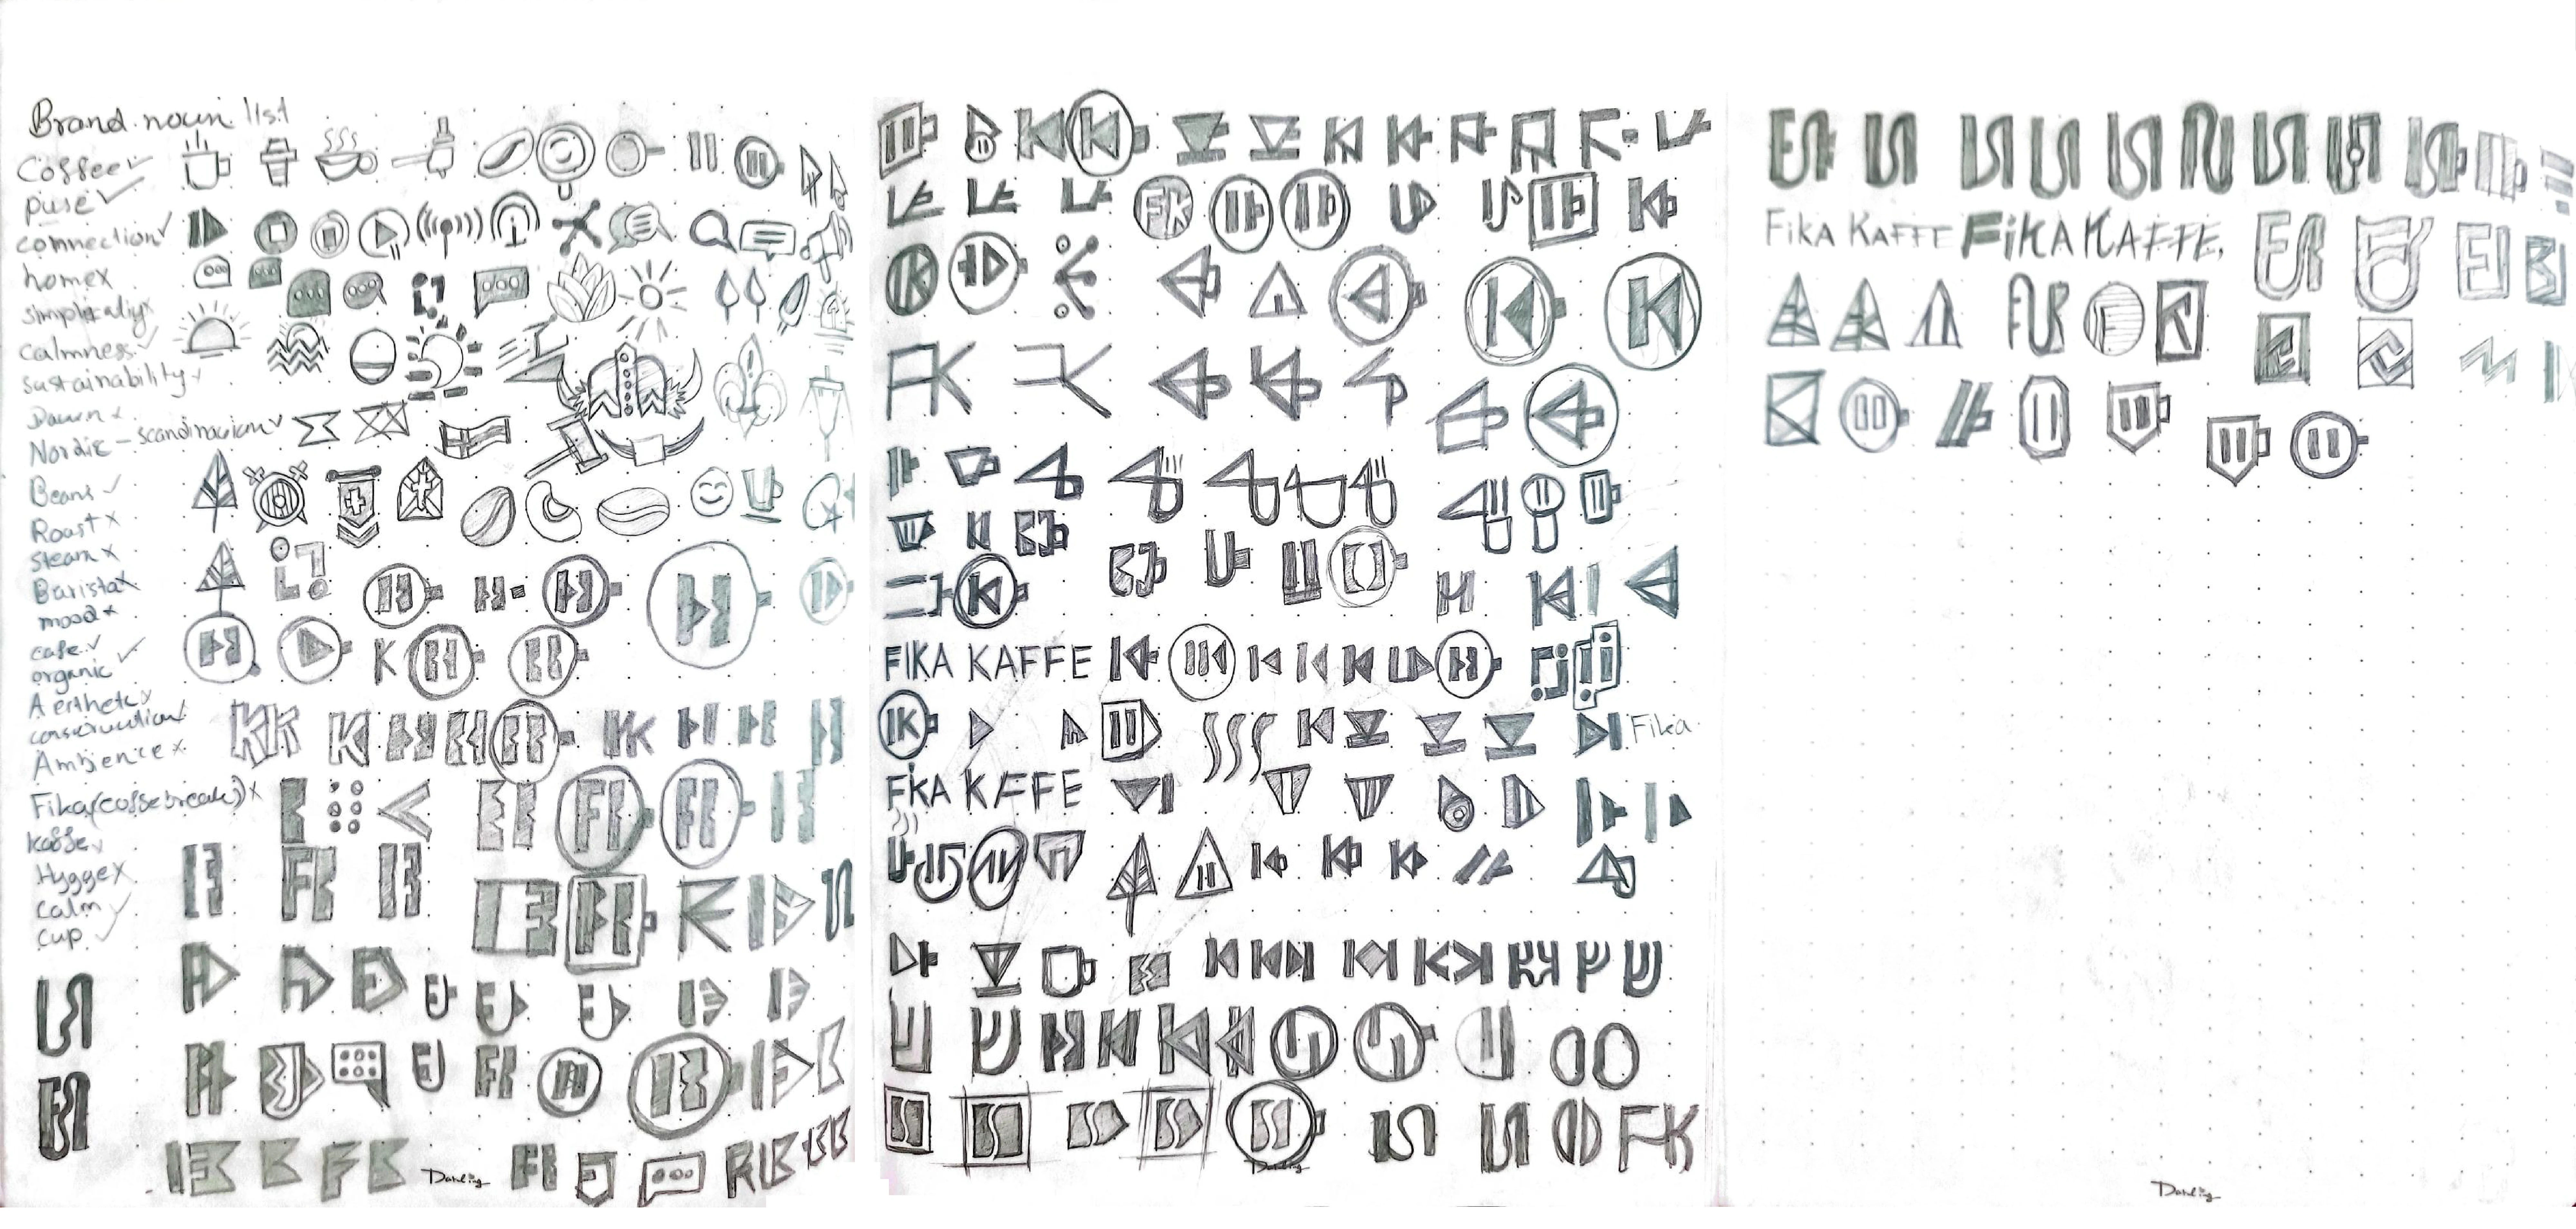 Brand noun list
Coffee ✓
puse ✓
connection ✓
home x
simplicatiy x
Calmness ✓
sustainability ✓
Dawn x
Nordic - scandinavian ✓
Beans ✓
Roast x
steam x
Barista x
mood x
cafe ✓
organic ✓
Ambience x
Fika (coffe break) x
kaffe ✓
Hygge x
calm ✓
cup ✓
K
KK
FK
Darling
FK
FIKA KAFFE
IK
Fika
FKA KAFFE
FK
Darling
FIKA KAFFE FIKA KAFFE.
Darling